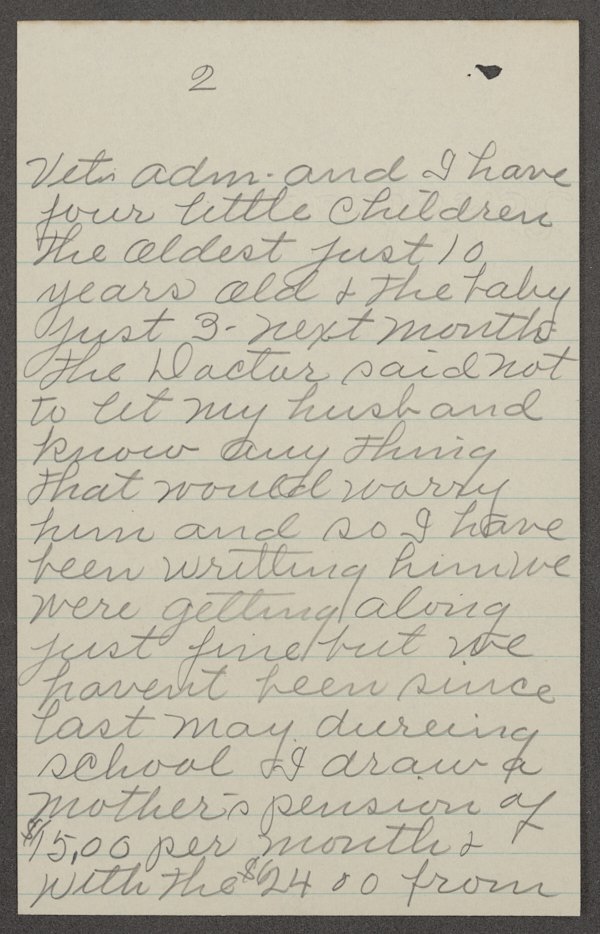 2
Vets adm. and I have
four little children
the oldest just 10
years old & the baby
just 3 - next month
the Doctor said not
to let my husband
know any thing
that would worry
him and so I have
been writting him we
were getting along
just fine but we
havent been since
last may. dureing
school I draw a
mother's pension of
$15,00 per month &
with the $24 00 from